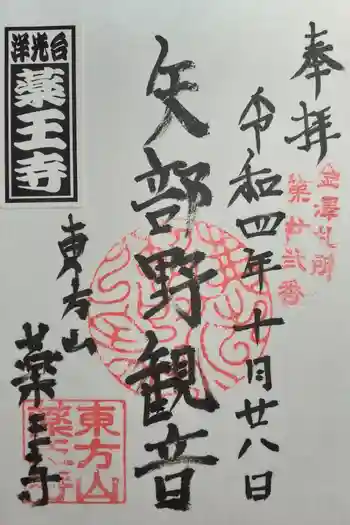 奉拝
金澤札所
第廿弐番
令和四年十月廿八日
矢部野観音
洋光台
薬王寺
東方山
薬王寺
東方山
薬王寺